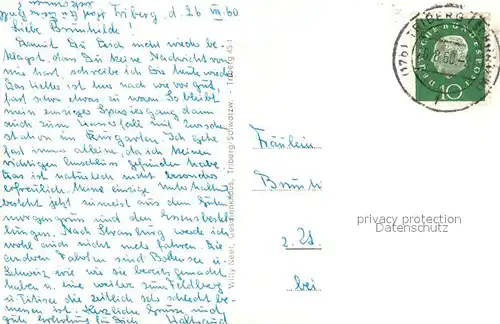 Triberg, d. 26. VII. 60
Liebe Brunhilde!
Damit Du Dich nicht wieder be-
klagst, dass Du keine Nachricht von
mir hast, schreibe ich Dir heute
Das Wetter ist hier nach wie vor gut,
fast schon etwas zu warm. Es bleibt
mein einziger Spaziergang dann
auch zum Wasserfall und
schon im Kurgarten. Ich gehe
fast immer alleine, da ich keinen
richtigen Anschluss gefunden habe.
Das ist natürlich nicht besonders
erfreulich. Meine einzige Unterhaltung
besteht jetzt zumeist aus dem Guten-
morgengruss und den Essensbestel-
lungen. Nach Strassburg werde ich
wohl auch nicht mehr fahren. Die
anderen Fahrten sind Bodensee u.
Schweiz wie wir sie bereits gemacht
haben u. eine weitere zum Feldberg
u. Titisee die zeitlich sehr schlecht be-
messen ist. Herzliche Grüsse und
gute Erholung für Dich Waltraud
Willy Neef, Triberg-Schwarzw. - Triberg 451
(17b) TRIBERG
DEUTSCHE BUNDESPOST
10
Fräulein
Brunh
z. Zt.
bei
privacy protection
Datenschutz